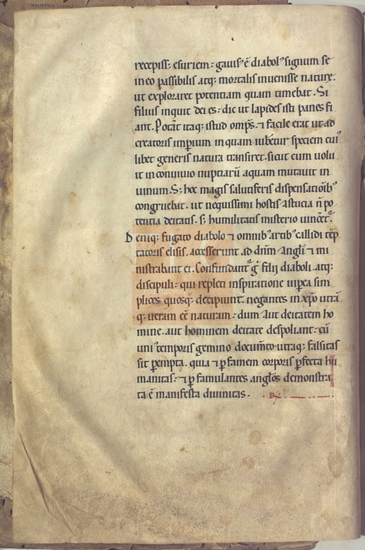 recepiss; esuriem: gauisꝰ ē diabolꝰ signum se
in eo passibilis atq; mortalis inuenisse nature.
ut exploraret potentiam quam timebat. Si
filius inquit dei es: dic ut lapides isti panes fi
ant. Poterat itaq; istud omps. ⁊ facile erat ut ad
creatoris imperium in quam iuberetur speciem cuiꝰ
libet generis natura transiret: sicut cum uolu
it in conuiuio nuptiarū aquam mutauit in
uinum. S; hoc magis salutiferis dispensationibꝰ
congruebat. ut nequissimi hostis astucia n̄ po
tentia deitatis. s; humilitatis misterio uinceretꝰ.
Deniq; fugato diabolo ⁊ omnibꝰ artibꝰ callidi tēp
tatoris elisis. accesserunt ad dn̄m angli ⁊ mi
nistrabant ei. Confundant̄ g̊ filij diaboli. atq;
discipuli: qui repleti inspiratione uiperea sim
plices quosq; decipiunt. negantes in xp̄o utrā
q; ueram eē naturam: dum aut deitatem ho
mine. aut hominem deitate despoliant: cū
uniꝰ temporis gemino documento utraq; falsitas
sit perempta. quia ⁊ per famem corporis perfecta hu
manitas: ⁊ per famulantes anglos demonstra
ta ē manifesta diuinitas.